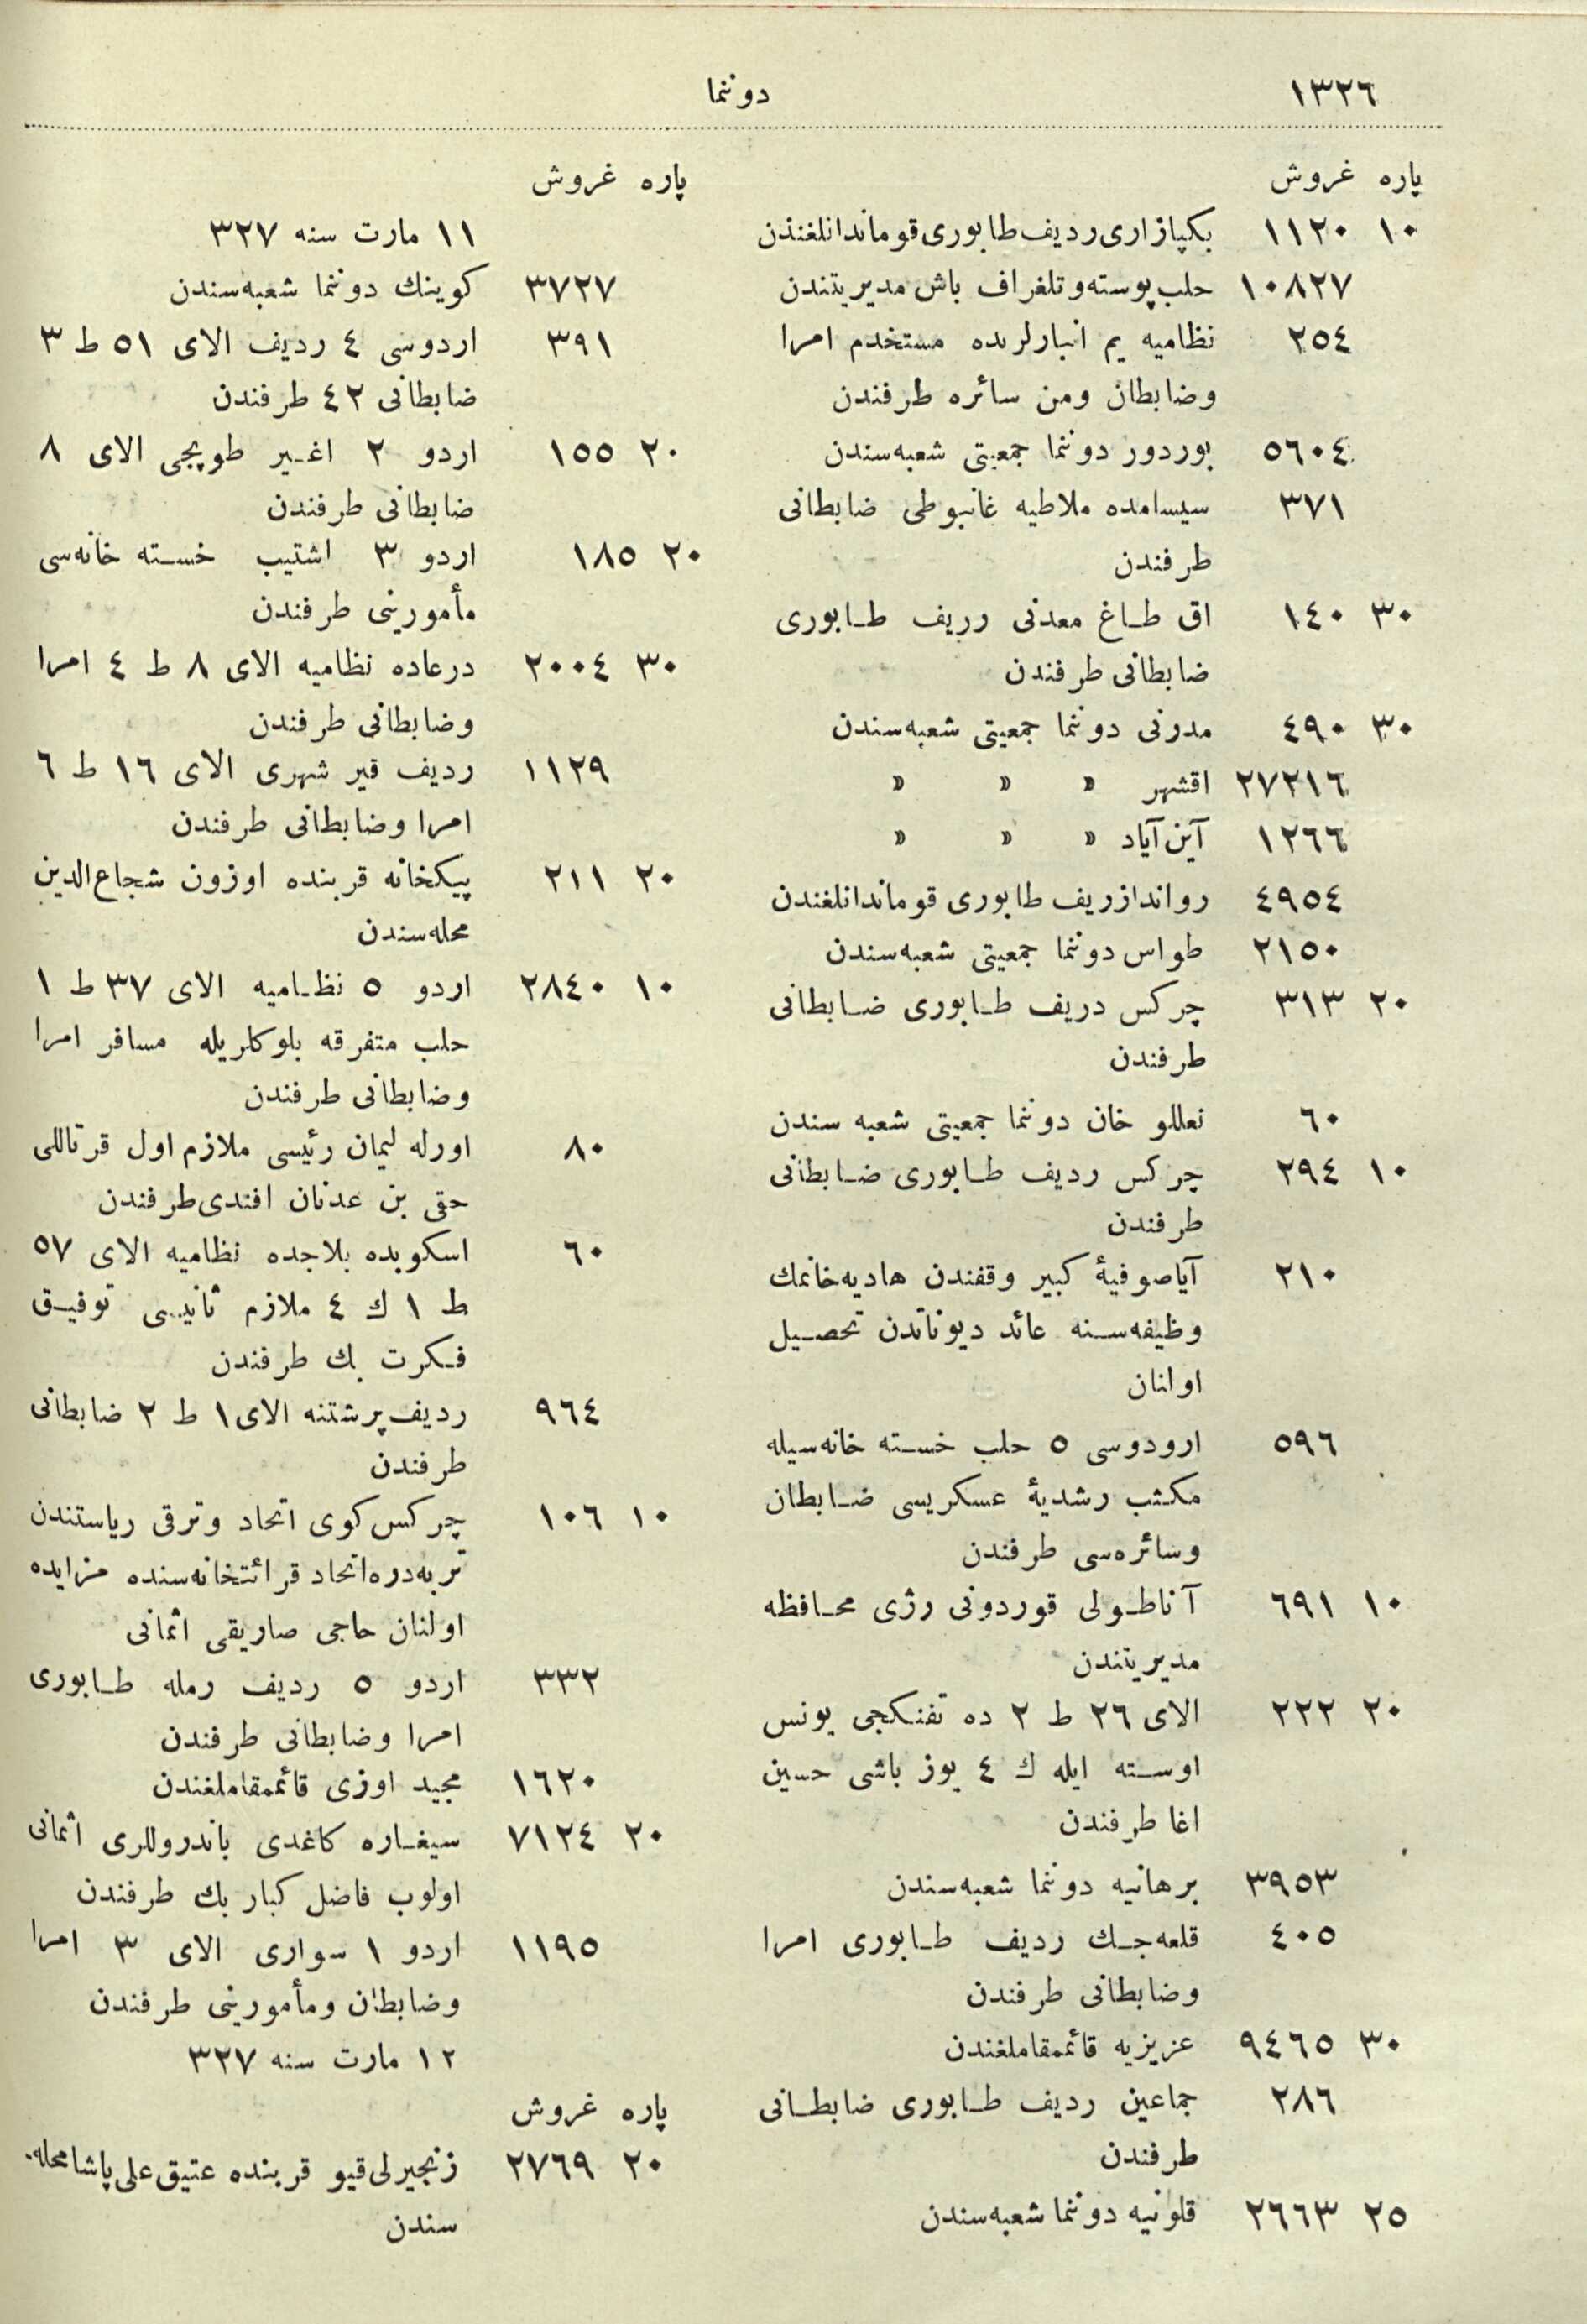 ١٣٢٦
دوننما
پاره غروش
١٠ ١١٢٠ بكپازاری ردیف طابوری قوماندانلغندن
١٠٨٢٧ حلب پوسته و تلغراف باش مدیریتندن
٢٥٤ نظامیه یم انبارلرنده مستخدم امرا
وضابطان ومن سائره طرفندن
٥٦٠٤ بوردور دوننما جمعیتی شعبه‌سندن
٣٧١ سیسامده ملاطیه غانبوطی ضابطانی
طرفندن
٣٠ ١٤٠ اق طاغ معدنی رریف طابوری
ضابطانی طرفندن
٣٠ ٤٩٠ مدرنی دوننما جمعیتی شعبه‌سندن
٢٧٢١٦ اقشهر » » »
١٢٦٦ آین آیاد » » »
٤٩٥٤ رواندازریف طابوری قوماندانلغندن
٢١٥٠ طواس دوننما جمعیتی شعبه‌سندن
٢٠ ٣١٣ چركس دریف طابوری ضابطانی
طرفندن
٦٠ نعللو خان دوننما جمعیتی شعبه سندن
١٠ ٢٩٤ چركس ردیف طابوری ضابطانی
طرفندن
٢١٠ آیاصوفیۀ كبیر وقفندن هادیه خانمك
وظیفه‌سنه عائد دیوناتدن تحصیل
اولنان
٥٩٦ ارودوسی ٥ حلب خسته خانه‌سیله
مكتب رشدیۀ عسكریسی ضابطان
وسائره‌سی طرفندن
١٠ ٦٩١ آناطولی قوردونی رژی محافظه
مدیریتندن
٢٠ ٢٢٢ الای ٢٦ ط ٢ ده تفنكجی یونس
اوسته ایله ك ٤ یوز باشی حسین
اغا طرفندن
٣٩٥٣ برهانیه دوننما شعبه‌سندن
٤٠٥ قلعه‌جك ردیف طابوری امرا
وضابطانی طرفندن
٣٠ ٩٤٦٥ عزیزیه قائممقاملغندن
٢٨٦ جماعین ردیف طابوری ضابطانی
طرفندن
٢٥ ٢٦٦٣ قلونیه دوننما شعبه‌سندن
پاره غروش
١١ مارت سنه ٣٢٧
٣٧٢٧ كوینك دوننما شعبه‌سندن
٣٩١ اردوسی ٤ ردیف الای ٥١ ط ٣
ضابطانی ٤٢ طرفندن
٢٠ ١٥٥ اردو ٢ اغیر طوپجی الای ٨
ضابطانی طرفندن
٢٠ ١٨٥ اردو ٣ اشتیب خسته خانه‌سی
مأمورینی طرفندن
٣٠ ٢٠٠٤ درعاده نظامیه الای ٨ ط ٤ امرا
وضابطانی طرفندن
١١٢٩ ردیف قیر شهری الای ١٦ ط ٦
امرا وضابطانی طرفندن
٢٠ ٢١١ پیكخانه قربنده اوزون شجاع‌الدین
محله‌سندن
١٠ ٢٨٤٠ اردو ٥ نظامیه الای ٣٧ ط ١
حلب متفرقه بلوكلریله مسافر امرا
وضابطانی طرفندن
٨٠ اورله لیمان رئیسی ملازم اول قرتاللی
حقی بن عدنان افندی طرفندن
٦٠ اسكوبده بلاجده نظامیه الای ٥٧
ط ١ ك ٤ ملازم ثانیسی توفیق
فكرت بك طرفندن
٩٦٤ ردیف پرشتنه الای ١ ط ٢ ضابطانی
طرفندن
١٠ ١٠٦ چركس كوی اتحاد وترقی ریاستندن
تربه‌دره اتحاد قرائتخانه‌سنده مزایده
اولنان حاجی صاریقی اثمانی
٣٣٢ اردو ٥ ردیف رمله طابوری
امرا وضابطانی طرفندن
١٦٢٠ مجید اوزی قائممقاملغندن
٢٠ ٧١٢٤ سیغاره كاغدی باندروللری اثمانی
اولوب فاضل كبار بك طرفندن
١١٩٥ اردو ١ سواری الای ٣ امرا
وضابطان ومأمورینی طرفندن
١٢ مارت سنه ٣٢٧
پاره غروش
٢٠ ٢٧٦٩ زنجیرلی قیو قربنده عتیق علی پاشا محله‌
سندن